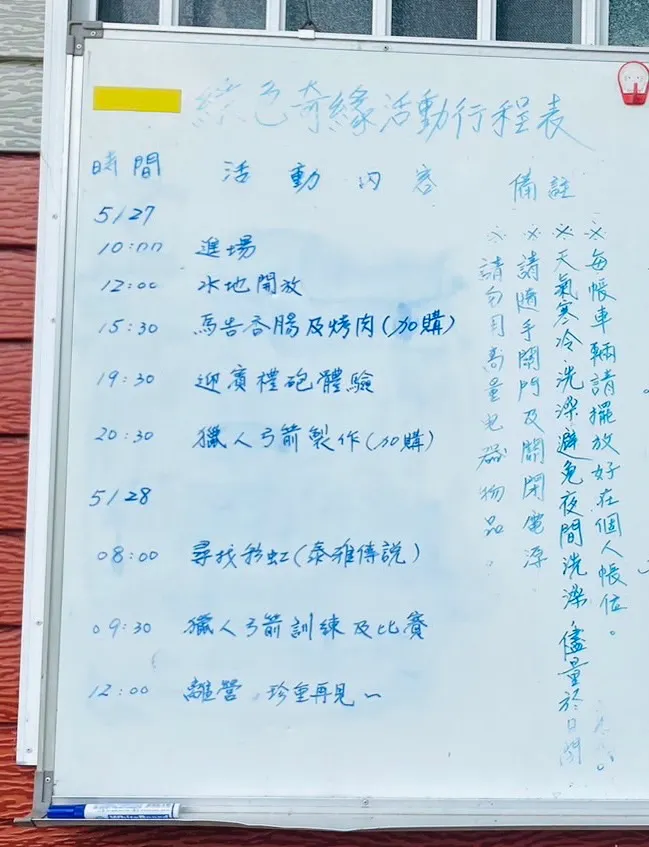 綠色奇緣活動行程表
時間 活動內容 備註
5/27
10:00 進場
12:00 水地開放
15:30 馬告香腸及烤肉(加購)
19:30 迎賓禮砲體驗
20:30 獵人弓箭製作(加購)
5/28
08:00 尋找彩虹(泰雅傳說)
09:30 獵人弓箭訓練及比賽
12:00 離營,珍重再見~
※每帳車輛請擺放好在個人帳位。
※天氣寒冷洗澡避免夜間洗澡,儘量於日間
※請隨手關門及關閉電源
※請勿用高量電器物品。
WhiteBoard